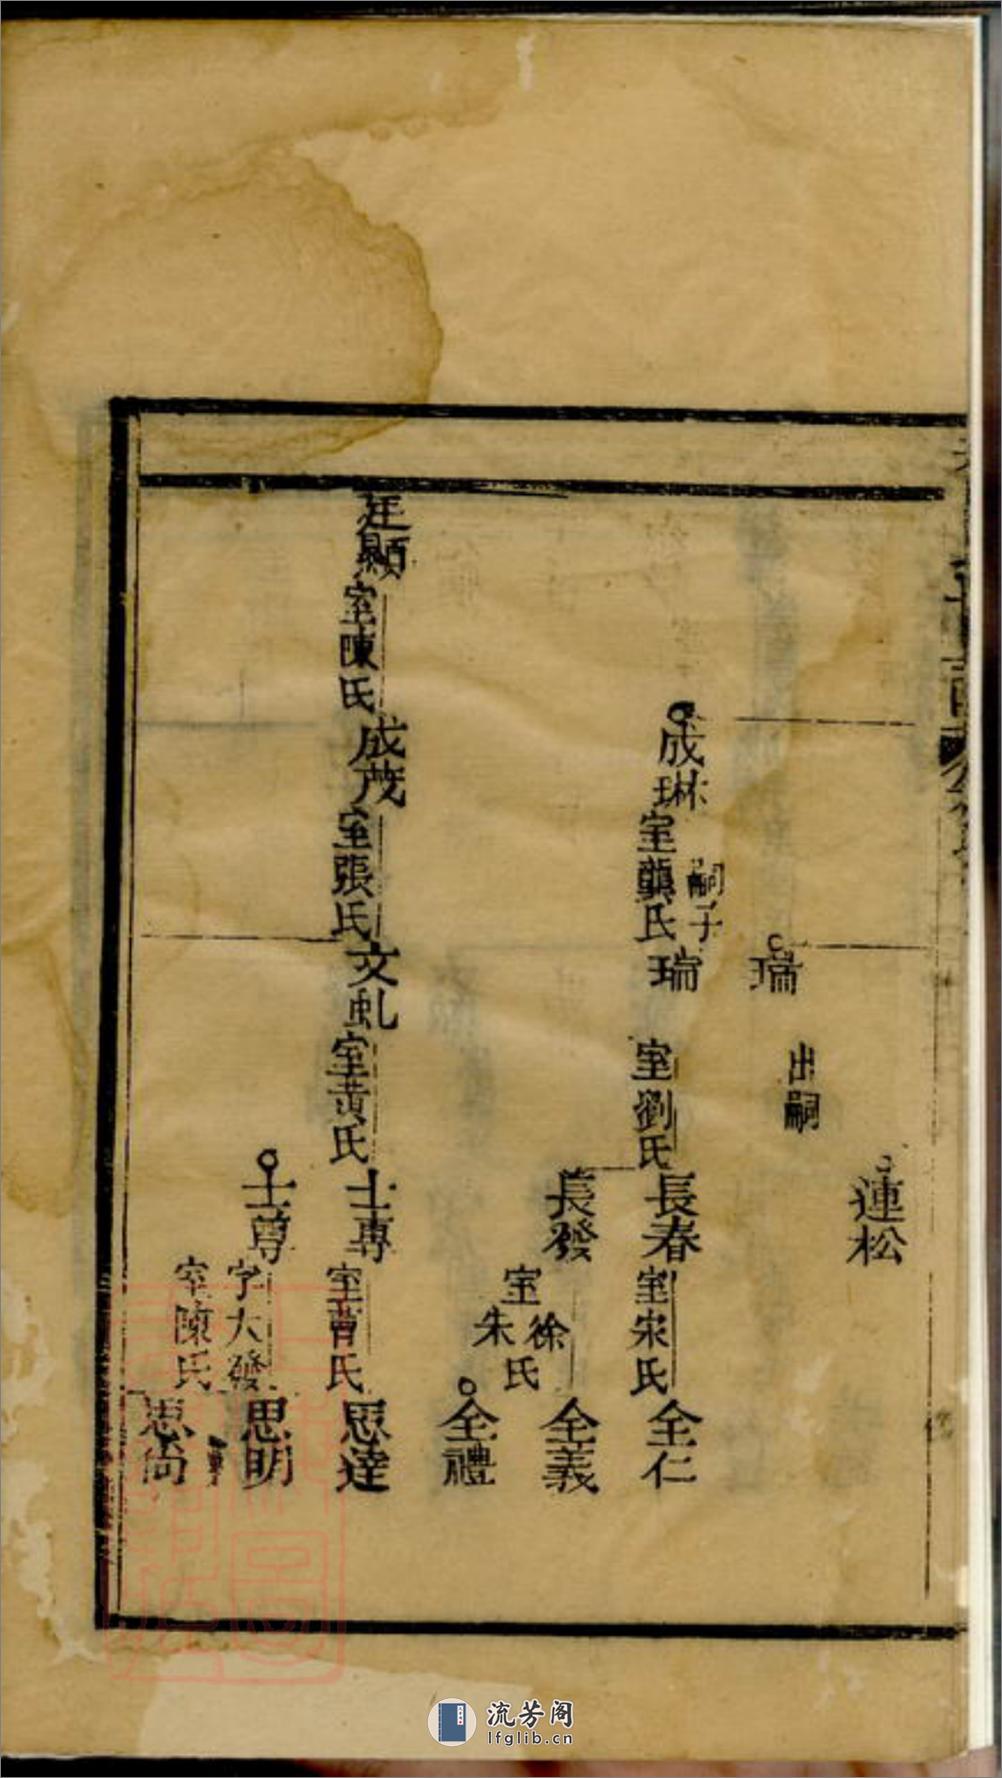 連松
瑞
出嗣
成琳
室龔氏
嗣子
瑞
室劉氏
長春
室宋氏
全仁
長發
室徐氏
朱
全義
全禮
廷顯
室陳氏
成茂
室張氏
文虬
室黃氏
士專
室曹氏
思達
士尊
字大發
室陳氏
思明
思尚
流芳阁
lfglib.cn